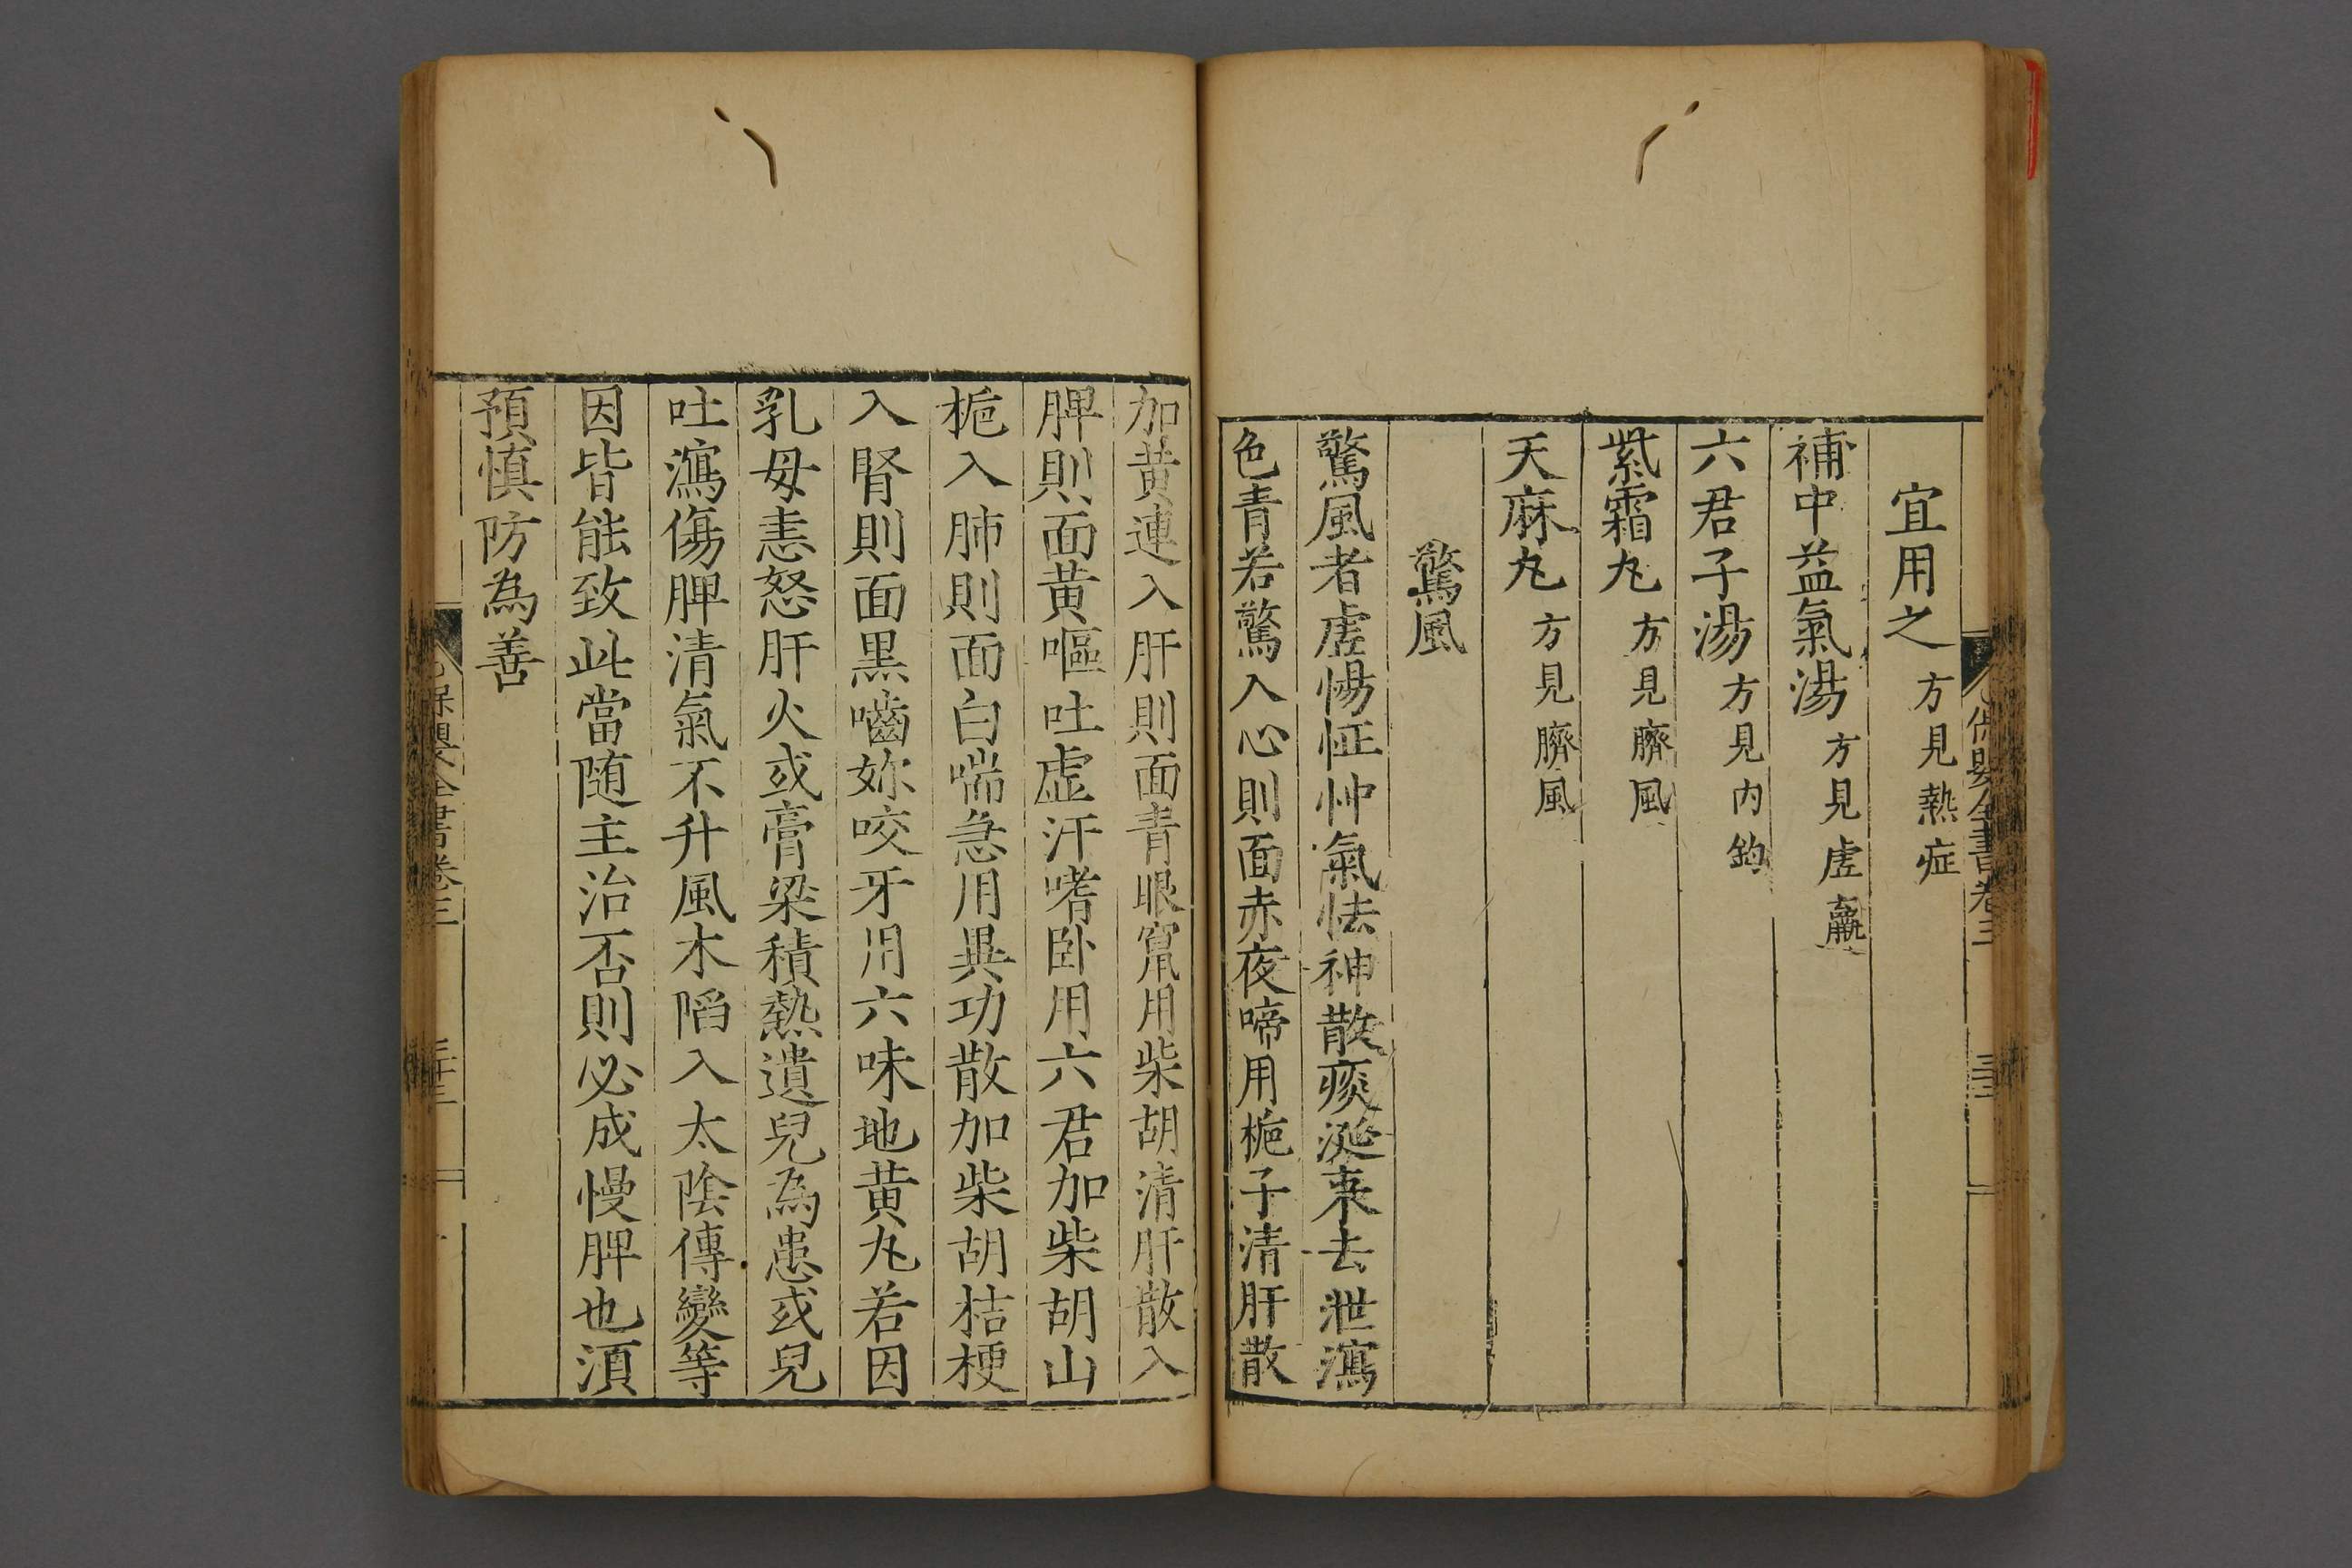 宜用之 方見熱症
補中益氣湯 方見虛羸
六君子湯 方見內鈎
紫霜丸 方見臍風
天麻丸 方見臍風
驚風
驚風者虛惕怔忡氣怯神散痰涎來去泄瀉
色青若驚入心則面赤夜啼用梔子清肝散
加黃連入肝則面青眼竄用柴胡清肝散入
脾則面黃嘔吐虛汗嗜卧用六君加柴胡山
梔入肺則面白喘急用異功散加柴胡桔梗
入腎則面黑嚙妳咬牙用六味地黃丸若因
乳母恚怒肝火或膏梁積熱遺兒為患或兒
吐瀉傷脾清氣不升風木陷入太陰傳變等
因皆能致此當随主治否則必成慢脾也湏
預慎防為善
保嬰全書卷三